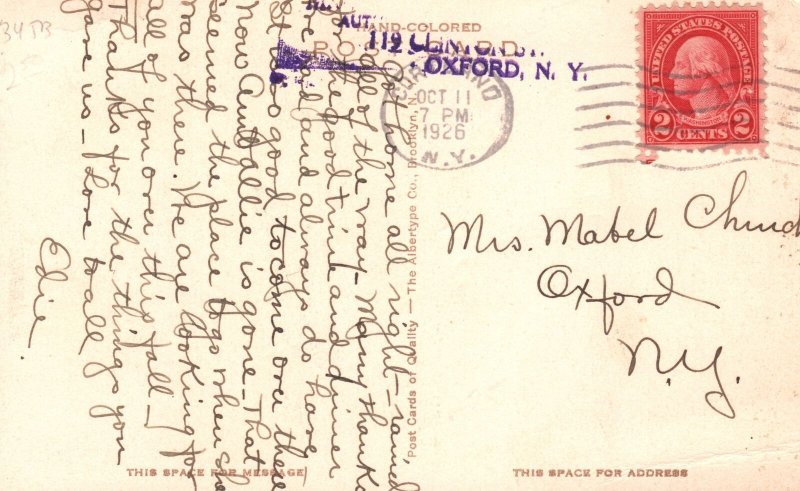 34 53
HAND-COLORED
AUT
112 CLINTON ST.
OXFORD, N. Y.
CORTLAND
OCT 11
7 PM
1926
N.Y.
UNITED STATES POSTAGE
WASHINGTON
2 CENTS 2
Got home all right - rained
all of the way - Many thanks
for the good time and dinner
we had and always do have
It is so good to come over there
now Aunt Allie is gone. That
seemed the place to go when she
was there. We are looking for
all of you over this fall -
Thanks for the things you
gave us - Love to all
Edie.
Post Cards of Quality — The Albertype Co., Brooklyn, N.
Mrs. Mabel Church
Oxford
N.Y.
THIS SPACE FOR MESSAGE
THIS SPACE FOR ADDRESS